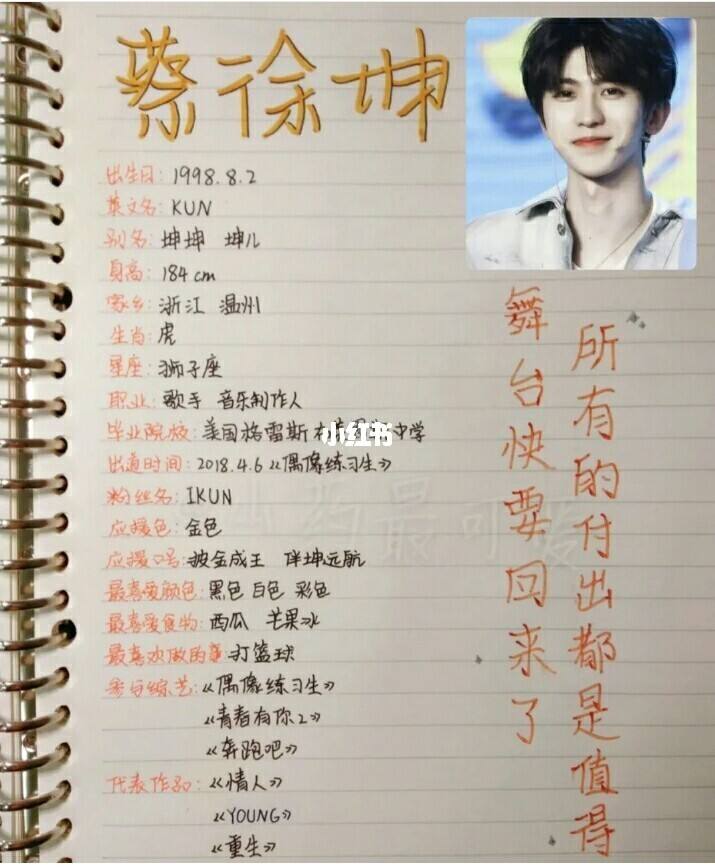 蔡徐坤
出生日: 1998.8.2
英文名: KUN
别名: 坤坤 坤儿
身高: 184cm
家乡: 浙江 温州
生肖: 虎
星座: 狮子座
职业: 歌手 音乐制作人
毕业院校: 美国格雷斯 中学
小红书
出道时间: 2018.4.6《偶像练习生》
粉丝名: IKUN
应援色: 金色
应援口号: 披金成王 伴坤远航
最喜爱颜色: 黑色 白色 彩色
最喜爱食物: 西瓜 芒果冰
最喜欢做的事: 打篮球
参与综艺:《偶像练习生》
《青春有你2》
《奔跑吧》
代表作品:《情人》
《YOUNG》
《重生》
舞台快要回来了
所有的付出都是值得
最可爱